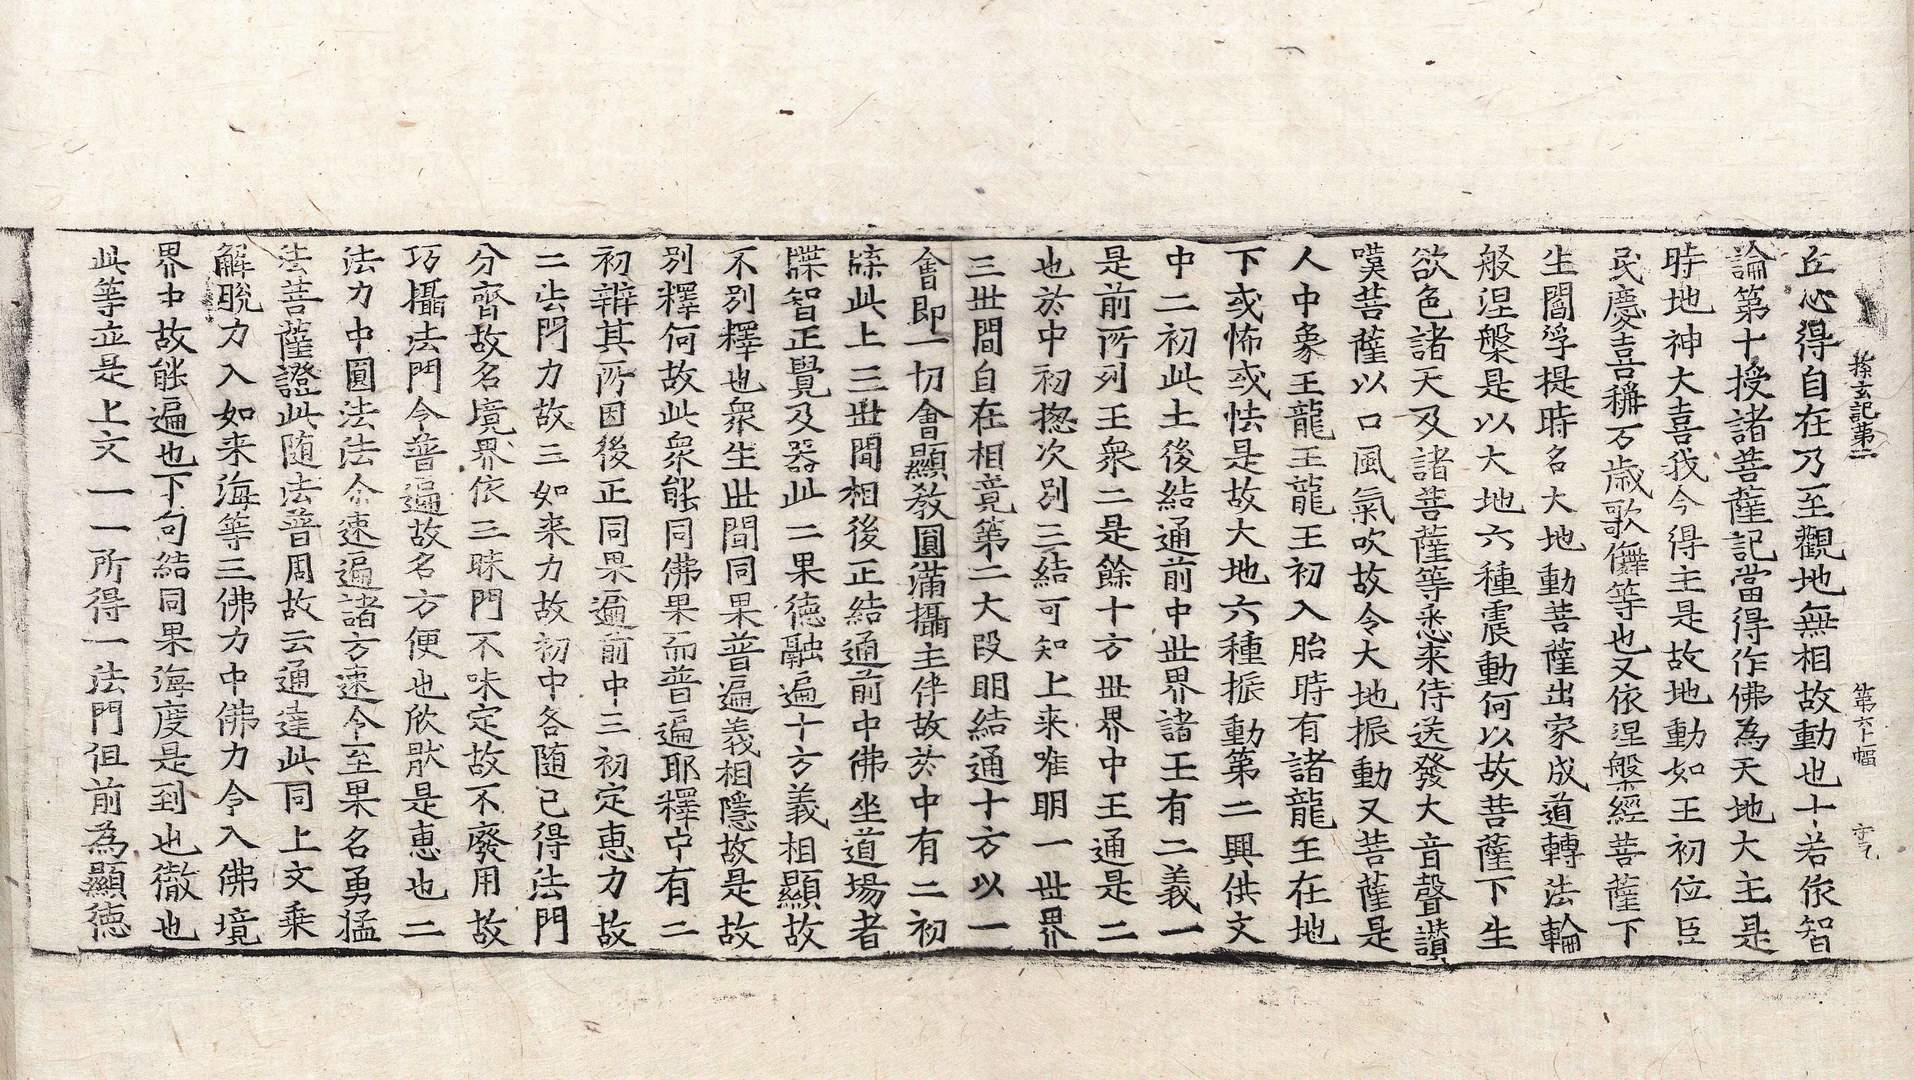 探玄記第二 第六上幅 守乙
丘心得自在乃至觀地無相故動也十若依智
論第十授諸菩薩記當得作佛為天地大主是
時地神大喜我今得主是故地動如王初位臣
民慶喜稱万歲歌儛等也又依涅槃經菩薩下
生閻浮提時名大地動菩薩出家成道轉法輪
般涅槃是以大地六種震動何以故菩薩下生
欲色諸天及諸菩薩等悉来侍送發大音聲讃
嘆菩薩以口風氣吹故令大地振動又菩薩是
人中象王龍王龍王初入胎時有諸龍王在地
下或怖或怯是故大地六種振動第二興供文
中二初此土後結通前中世界諸王有二義一
是前所列王衆二是餘十方世界中王通是二
也於中初揔次別三結可知上来唯明一世界
三世間自在相竟第二大段明結通十方以一
會即一切會顯教圓滿攝主伴故於中有二初
牒此上三世間相後正結通前中佛坐道場者
牒智正覺及器此二果德融遍十方義相顯故
不別釋也衆生世間同果普遍義相隱故是故
別釋何故此衆能同佛果而普遍耶釋中有二
初辨其所因後正同果遍前中三初定惠力故
二法門力故三如来力故初中各随已得法門
分齊故名境界依三昧門不味定故不廢用故
巧攝法門令普遍故名方便也欣猒是惠也二
法力中圓法法令速遍諸方速令至果名勇猛
法菩薩證此随法普周故云通達此同上文乗
解脱力入如来海等三佛力中佛力令入佛境
界中故能遍也下句結同果海度是到也徹也
此等並是上文一一所得一法門但前為顯德